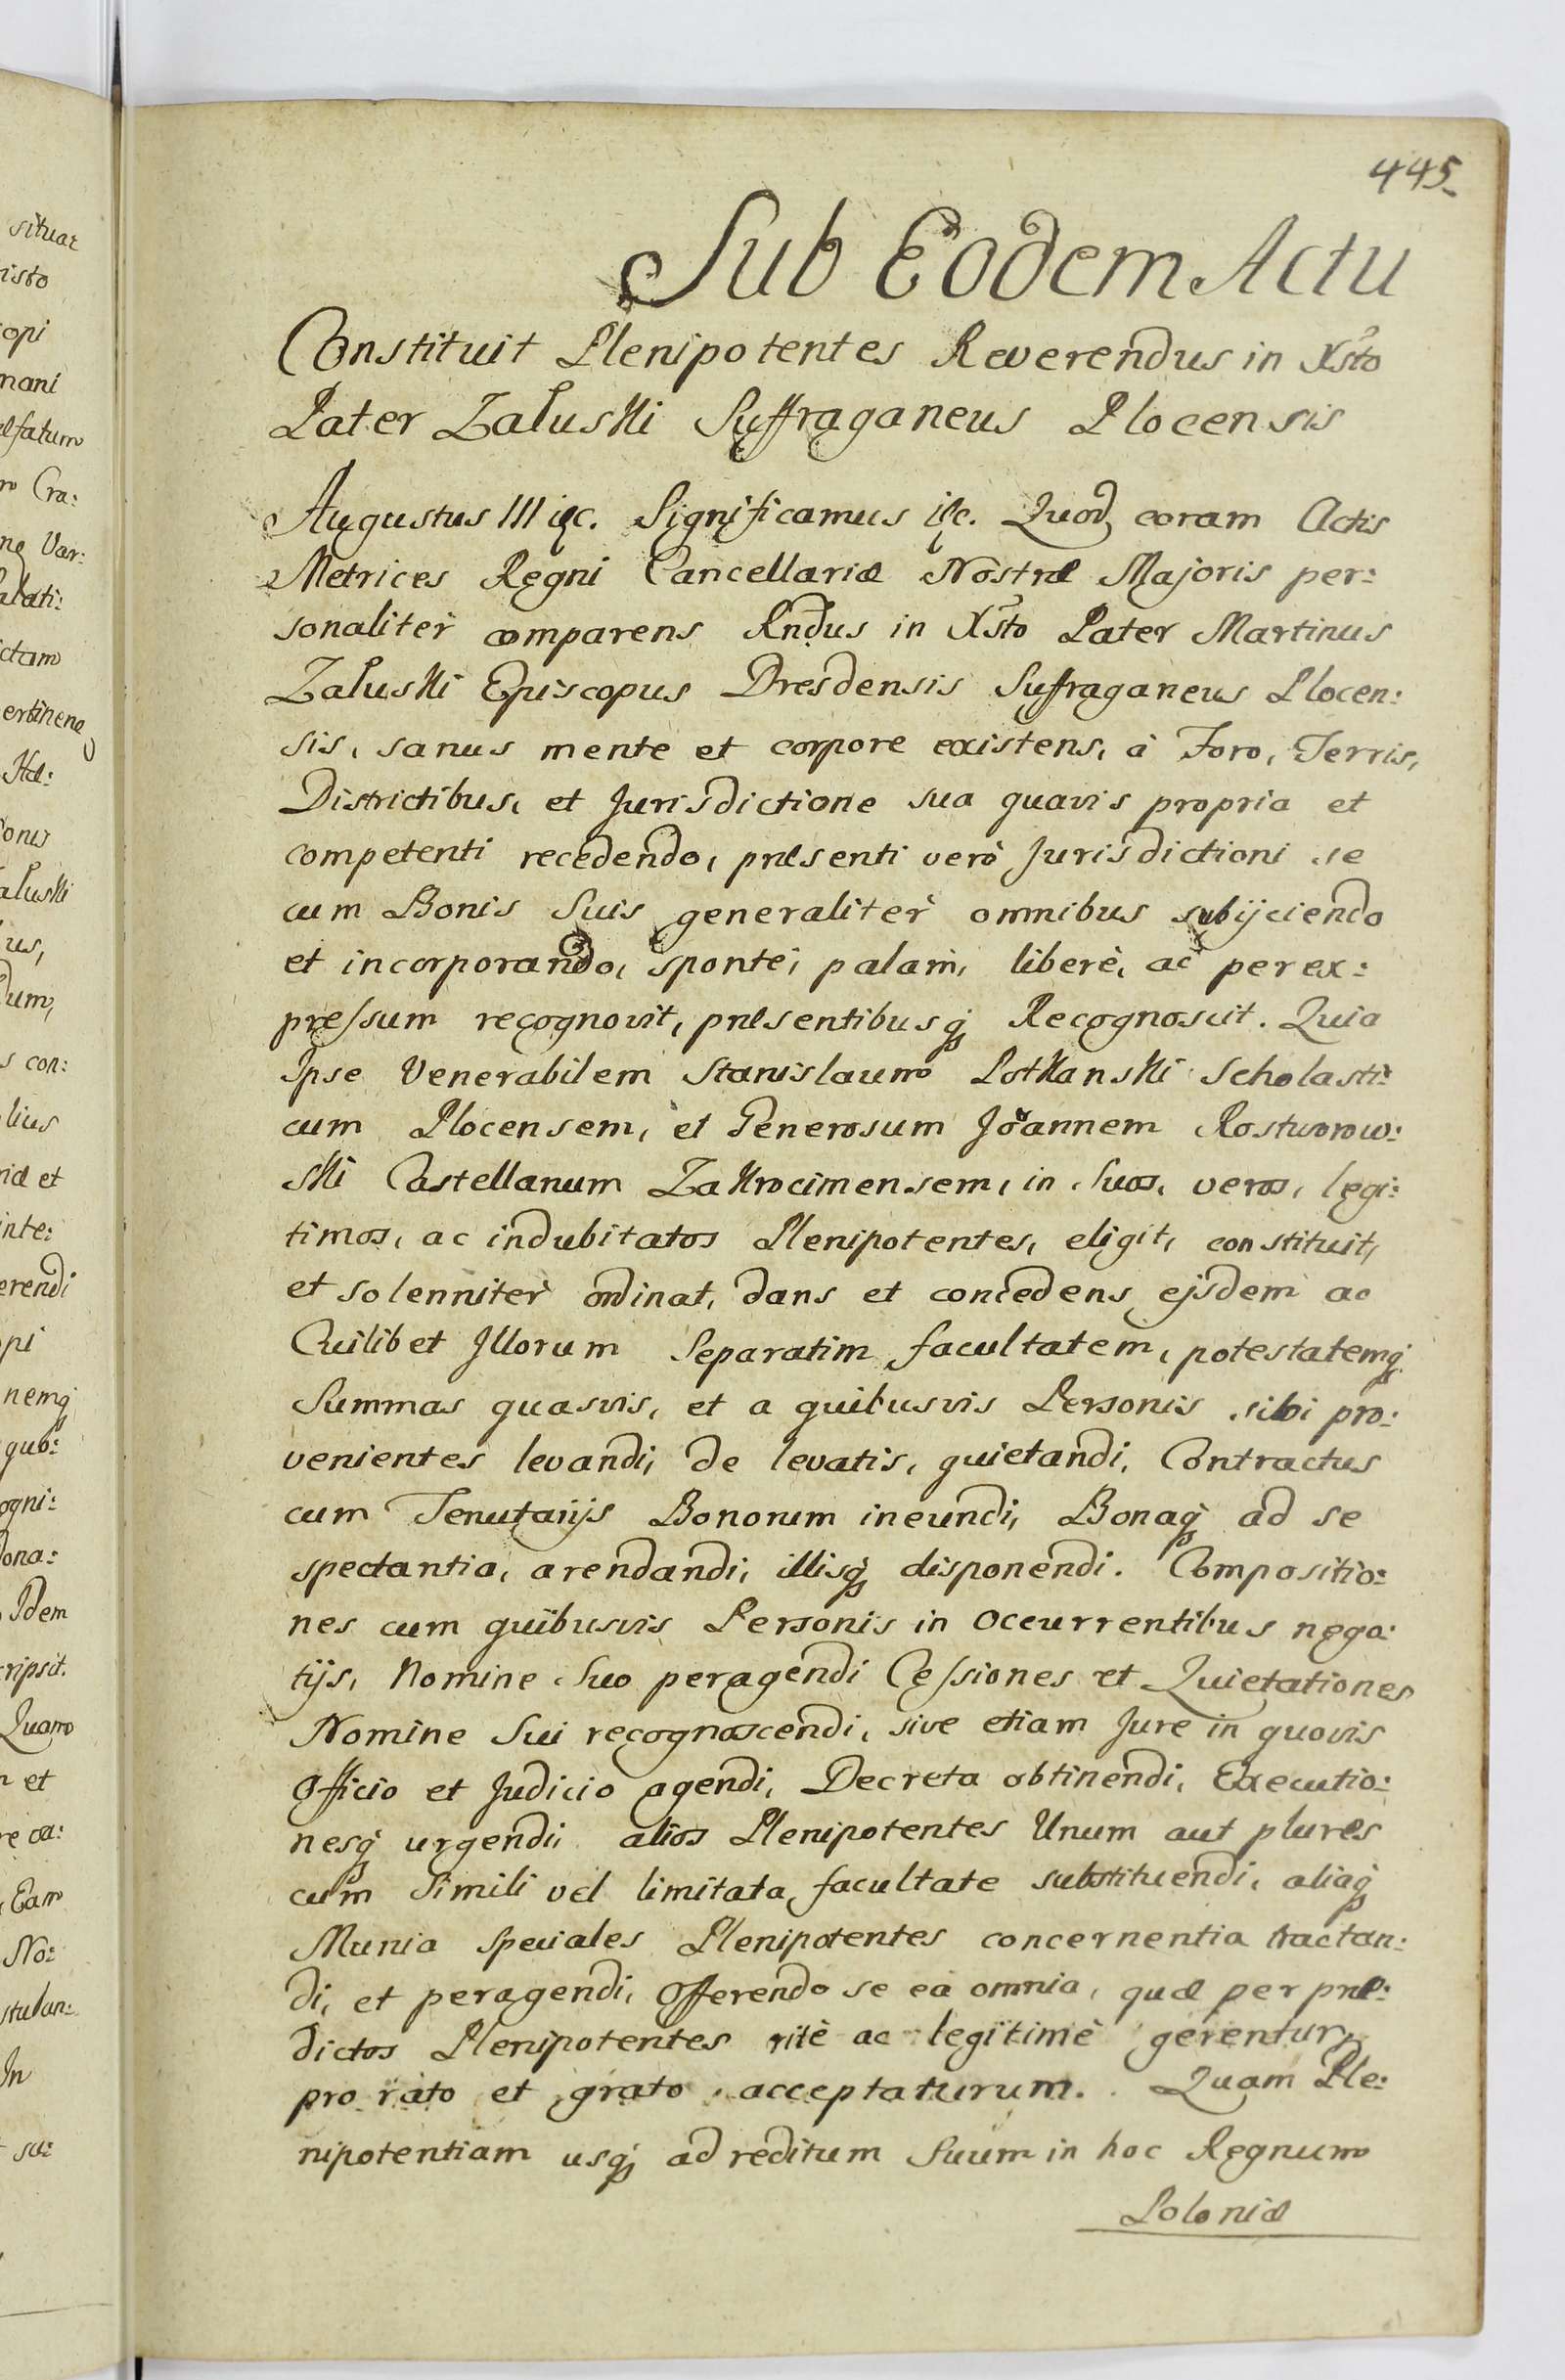 situar
isto
opi
mani
æfatum
ro Cra:
ne Var:
alati:
ctam
ertinene
Hæ:
onis
aluski
us,
dum,
s con:
lius
riæ et
inte:
erendi
opi
nemq́
quo:
ogni:
ona:
Idem
cripsit.
Quam
n et
Eam
No:
stulan:
In
445.
Sub Eodem Actu
Constituit Plenipotentes Reverendus in Xsto
Pater Załuski Suffraganeus Plocensis
Augustus III &c. Significamus &c. Quod, coram Actis
Metrices Regni Cancellariæ Nostræ Majoris per:
sonalitèr comparens Rndus in Xsto Pater Martinus
Załuski Episcopus Dresdensis Suffraganeus Plocen:
sis, sanus mente et corpore existens, à Foro, Terris,
Districtibus, et Jurisdictione sua quavis propria et
competenti recedendo, præsenti verò Jurisdictioni se
cum Bonis Suis generalitèr omnibus subijciendo
et incorporando, spontè, palam, liberè, ac per ex:
pressum recognovit, præsentibusq́ Recognoscit. Quia
Ipse Venerabilem Stanislaum Potkanski Scholasti:
cum Plocensem, et Generosum Joannem Rostworow:
ski Castellanum Zakrocimensem, in Suos, veros, legi:
timos, ac indubitatos Plenipotentes, eligit, constituit,
et solennitèr ordinat, dans et concedens ejsdem ac
Cuilibet Illorum Separatim facultatem, potestatemq́
Summas quasvis, et a quibusvis Personis sibi pro:
venientes levandi, de levatis, quietandi, Contractus
cum Tenutarijs Bonorum ineundi, Bonaq́ ad se
spectantia, arendandi, illisq́ disponendi. Compositio:
nes cum quibusvis Personis in occurrentibus nego:
tijs, Nomine Suo peragendi Cessiones et Quietationes
Nomine Sui recognoscendi, sive etiam Jure in quovis
Officio et Judicio agendi, Decreta obtinendi, Executio:
nesq́ urgendi, alios Plenipotentes Unum aut plures
cum Simili vel limitata facultate substituendi, aliaq́
Munia speciales Plenipotentes concernentia tractan:
di, et peragendi, Offerendo se ea omnia, quæ per præ:
dictos Plenipotentes ritè ac legitimè gerentur,
pro rato et grato acceptaturum. Quam Ple:
nipotentiam usq́ ad reditum Suum in hoc Regnum
Poloniæ